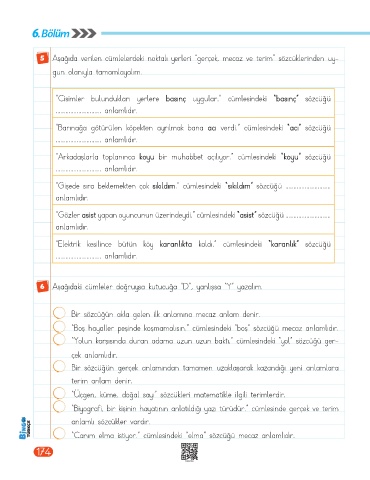 6. Bölüm
5 Aşağıda verilen cümlelerdeki noktalı yerleri "gerçek, mecaz ve terim" sözcüklerinden uy-
gun olanıyla tamamlayalım.
"Cisimler bulundukları yerlere basınç uygular." cümlesindeki "basınç" sözcüğü
........................ anlamlıdır.
"Barınağa götürülen köpekten ayrılmak bana acı verdi." cümlesindeki "acı" sözcüğü
........................ anlamlıdır.
"Arkadaşlarla toplanınca koyu bir muhabbet açılıyor." cümlesindeki "koyu" sözcüğü
........................ anlamlıdır.
"Gişede sıra beklemekten çok sıkıldım." cümlesindeki "sıkıldım" sözcüğü ........................
anlamlıdır.
"Gözler asist yapan oyuncunun üzerindeydi." cümlesindeki "asist" sözcüğü ........................
anlamlıdır.
"Elektrik kesilince bütün köy karanlıkta kaldı." cümlesindeki "karanlık" sözcüğü
........................ anlamlıdır.
6 Aşağıdaki cümleler doğruysa kutucuğa "D", yanlışsa "Y" yazalım.
Bir sözcüğün akla gelen ilk anlamına mecaz anlam denir.
"Boş hayaller peşinde koşmamalısın." cümlesindeki "boş" sözcüğü mecaz anlamlıdır.
"Yolun karşısında duran adama uzun uzun baktı." cümlesindeki "yol" sözcüğü ger-
çek anlamlıdır.
Bir sözcüğün gerçek anlamından tamamen uzaklaşarak kazandığı yeni anlamlara
terim anlam denir.
"Üçgen, küme, doğal sayı" sözcükleri matematikle ilgili terimlerdir.
"Biyografi, bir kişinin hayatının anlatıldığı yazı türüdür." cümlesinde gerçek ve terim
anlamlı sözcükler vardır.
"Canım elma istiyor." cümlesindeki "elma" sözcüğü mecaz anlamlıdır.
TÜRKÇE
174